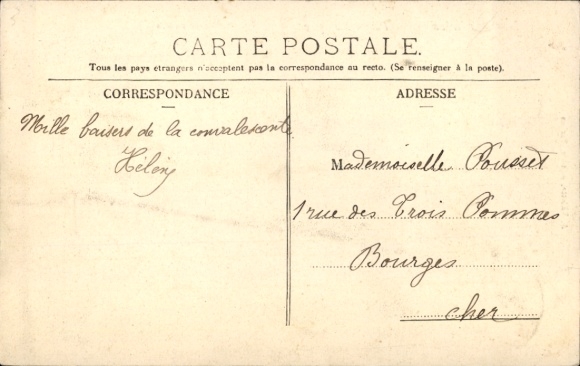 CARTE POSTALE.
Tous les pays étrangers n'acceptent pas la correspondance au recto. (Se renseigner à la poste).
CORRESPONDANCE
Mille baisers de la convalescente
Hélène
ADRESSE
Mademoiselle Pousset
1 rue des Trois Pommes
Bourges
Cher